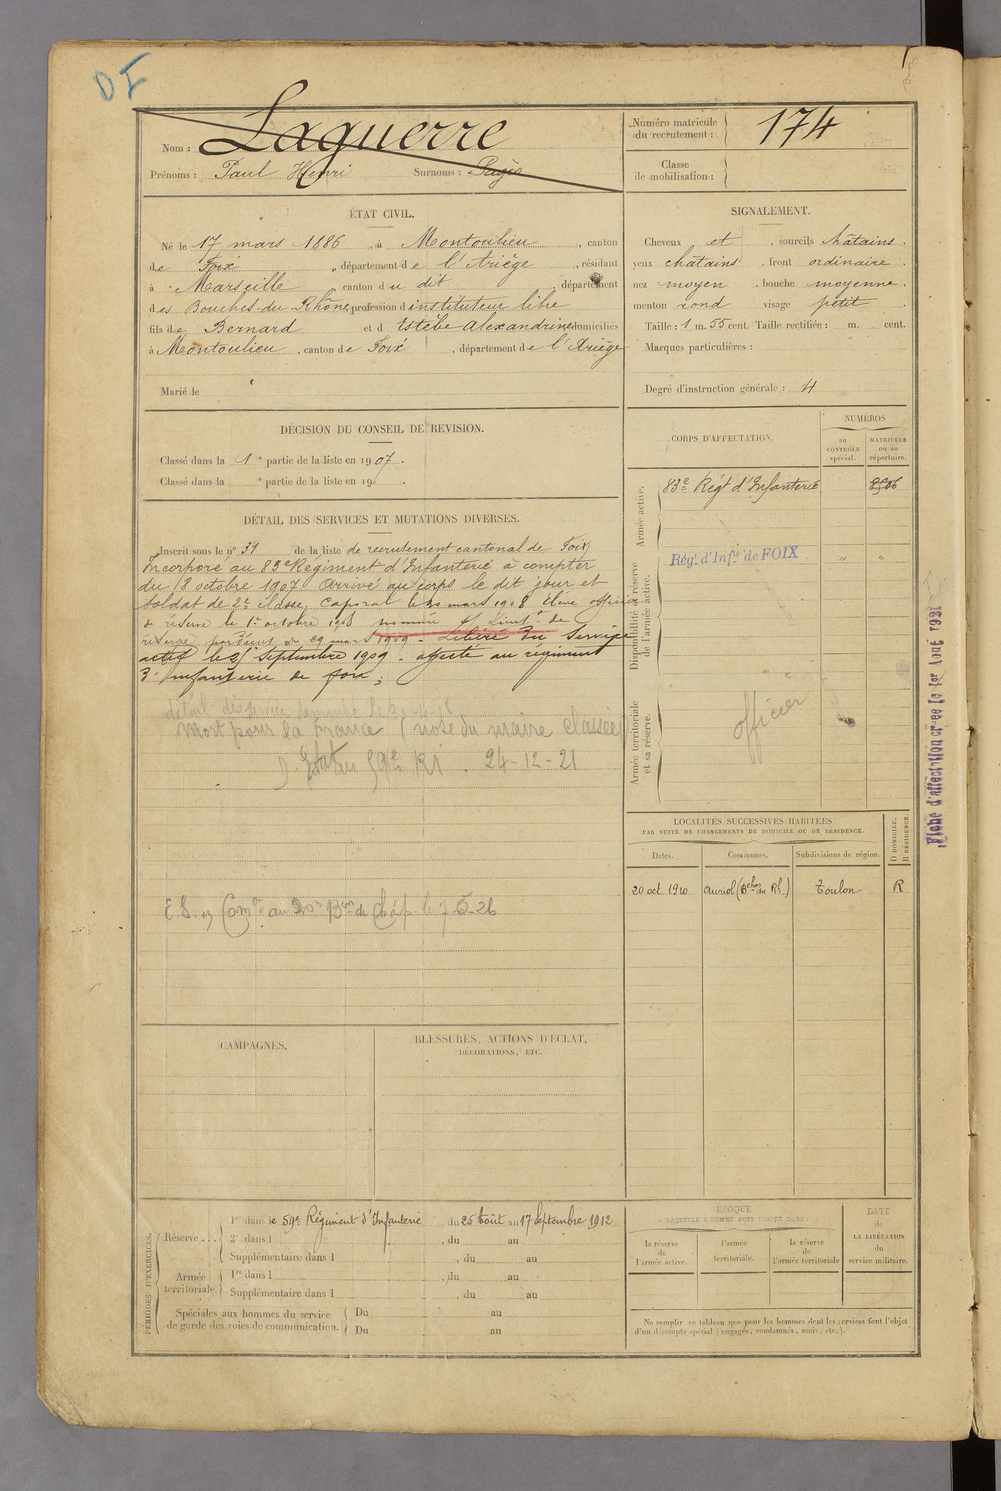 DI
Nom : Laguerre
Prénoms : Paul Henri Surnoms : Pagès
Numéro matricule du recrutement : 174
Classe de mobilisation :
ÉTAT CIVIL.
Né le 17 mars 1886, à Montoulieu, canton
de Foix, département de l'Ariège, résidant
à Marseille canton du dit, département
des Bouches-du-Rhône profession d'instituteur libre
fils de Bernard et d'Estèbe Alexandrine domiciliés
à Montoulieu, canton de Foix, département de l'Ariège
Marié le
SIGNALEMENT.
Cheveux et, sourcils châtains.
yeux châtains, front ordinaire.
nez moyen, bouche moyenne.
menton rond visage petit
Taille : 1 m. 55 cent. Taille rectifiée : m. cent.
Marques particulières :
Degré d'instruction générale : 4
DÉCISION DU CONSEIL DE REVISION.
Classé dans la 1e partie de la liste en 1907.
Classé dans la e partie de la liste en 19 .
DÉTAIL DES SERVICES ET MUTATIONS DIVERSES.
Inscrit sous le n° 31 de la liste de recrutement cantonal de Foix
Incorporé au 83e Régiment d'Infanterie à compter
du 8 octobre 1907 Arrivé au corps le dit jour et
soldat de 2e classe, Caporal le mars 1908 Elève officier
de réserve le 1er octobre 1908 nommé Lieutt de
réserve par du 29 mars 1909 - Libéré du Service
actif le septembre 1909 - affecté au régiment
d'infanterie de foix ;
détail des services demandé le
Mort pour la France (note du maire classée)
Etat au 59e RI. 24-12-21
E.S. Com on au Bon de Ch le 7-5-26
CORPS D'AFFECTATION.
NUMÉROS
au CONTRÔLE spécial.
MATRICULE ou au répertoire.
Armée active.
83e Régt d'Infanterie
Disponibilité et réserve de l'armée active.
Régt. d'Infie de FOIX " "
Armée territoriale et sa réserve.
officier
Fiche d'affectation créée le 1er Août 1921
LOCALITÉS SUCCESSIVES HABITÉES
PAR SUITE DE CHANGEMENTS DE DOMICILE OU DE RÉSIDENCE.
D DOMICILE. R RÉSIDENCE.
Dates. Communes. Subdivisions de région.
20 oct. 1910 Auriol (Bches du Rh.) Toulon R
CAMPAGNES.
BLESSURES, ACTIONS D'ÉCLAT,
DÉCORATIONS, ETC.
PÉRIODES D'EXERCICES.
Réserve ...
1re dans le 59e Régiment d'Infanterie du 26 Août au 17 Septembre 1912
2e dans l , du au
Supplémentaire dans l , du au
Armée territoriale.
1re dans l , du au
Supplémentaire dans l , du au
Spéciales aux hommes du service de garde des voies de communication.
Du au
Du au
ÉPOQUE
À LAQUELLE L'HOMME DOIT PASSER DANS :
la réserve de l'armée active.
l'armée territoriale.
la réserve de l'armée territoriale
DATE de LA LIBÉRATION du service militaire.
Ne remplir ce tableau que pour les hommes dont les services font l'objet
d'un décompte spécial (engagés, condamnés, omis, etc.).